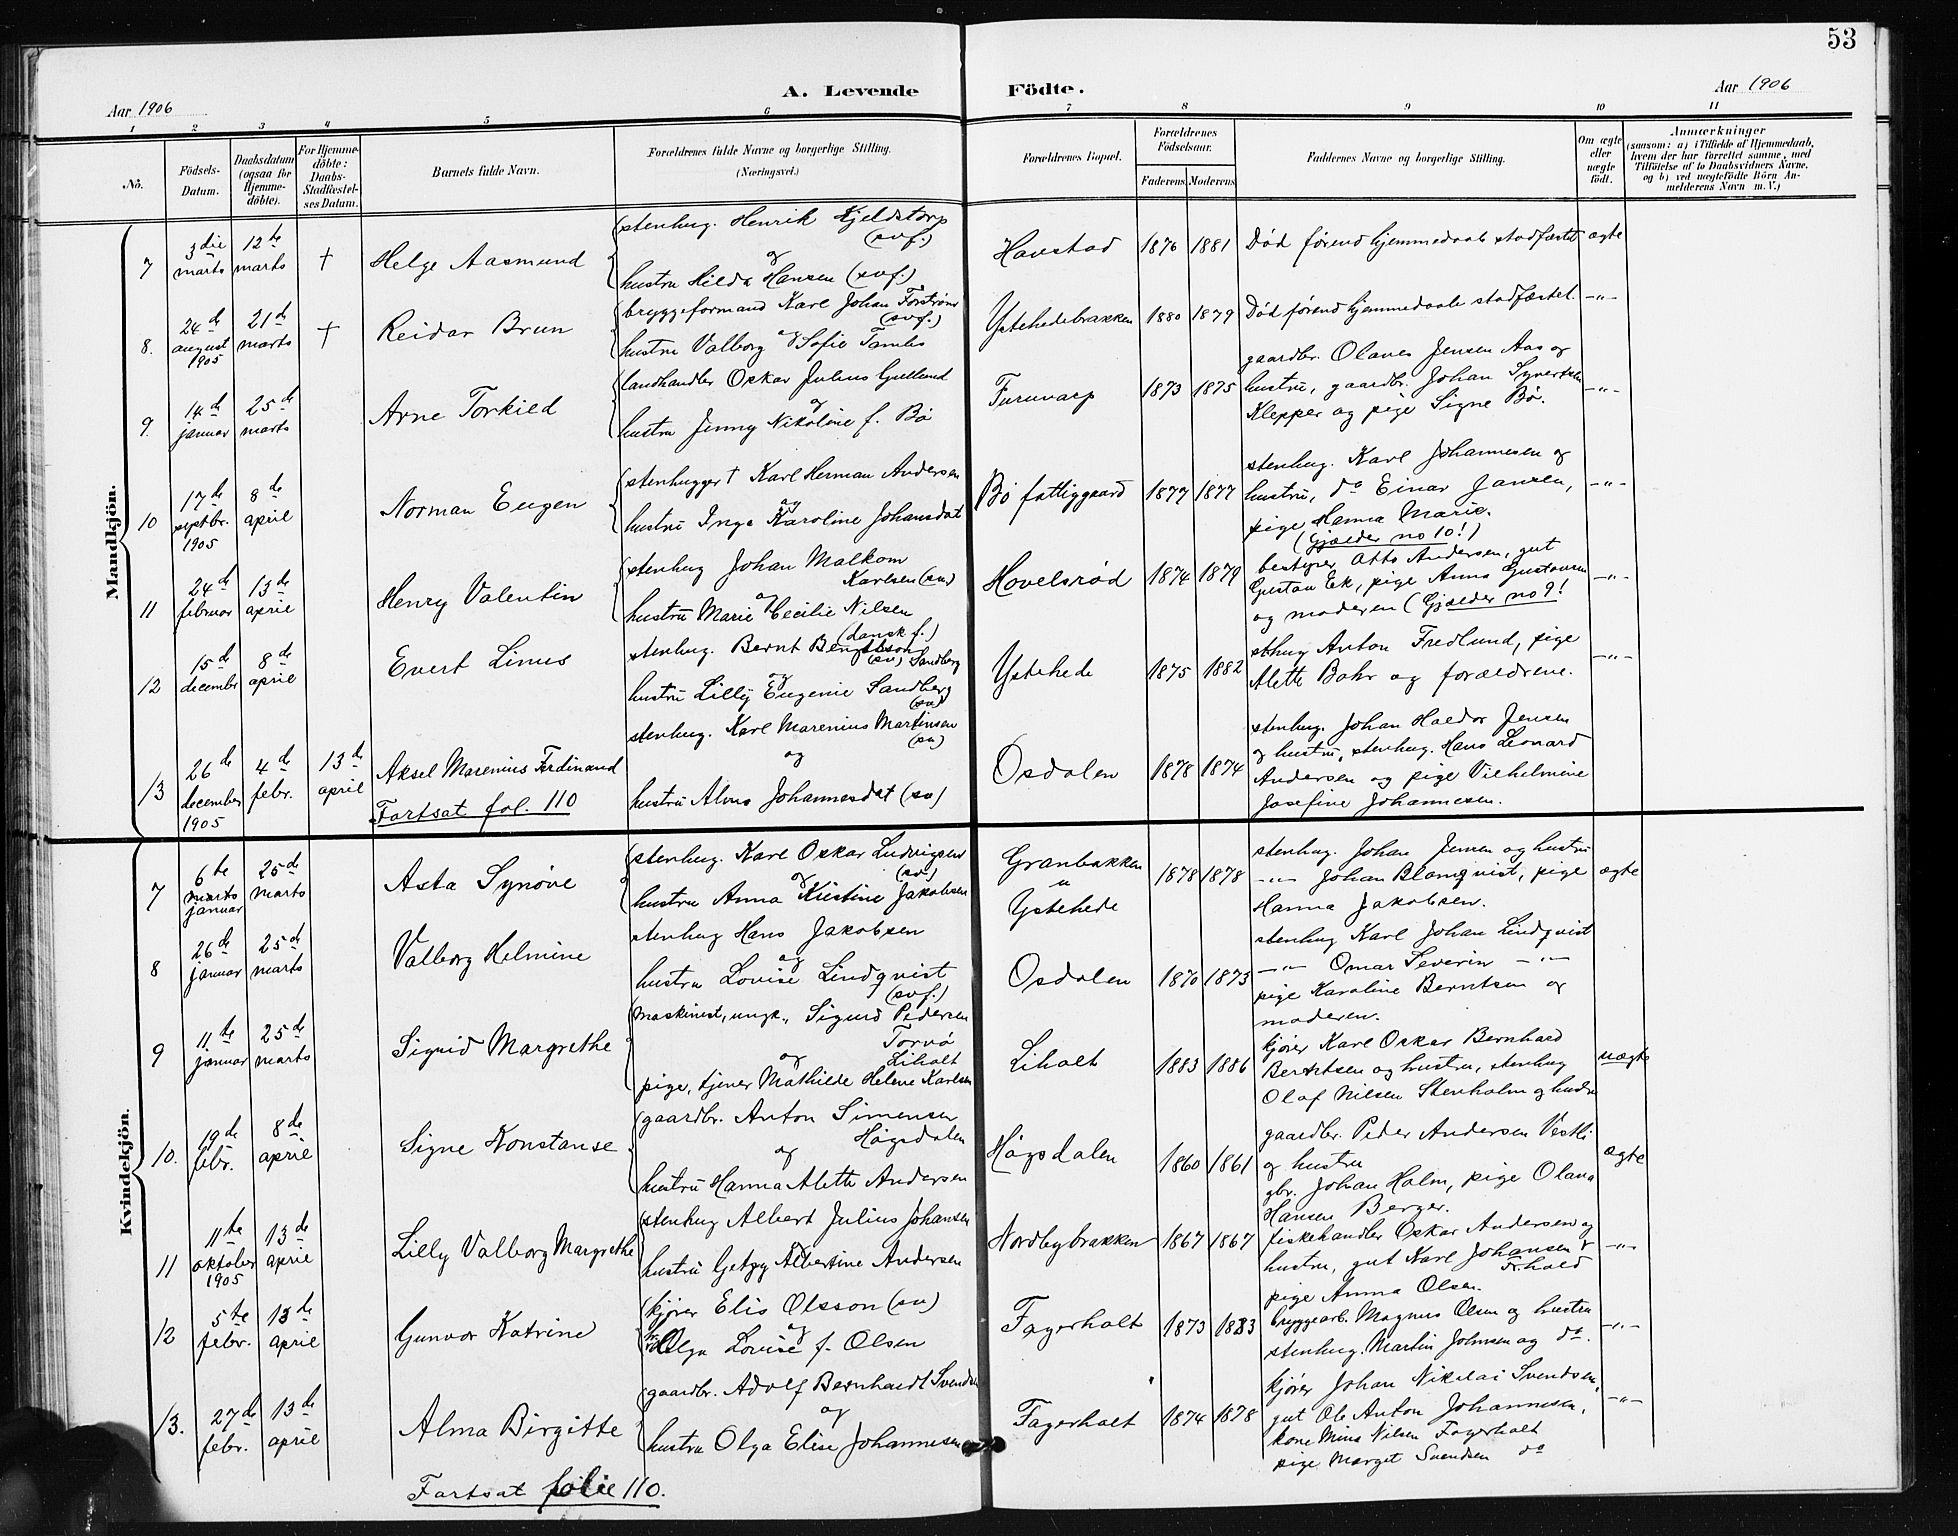 53
Aar 1906
A. Levende Födte.
Aar 1906
1 2 3 4 5 6 7 8 9 10 11
No.
Födsels-Datum.
Daabsdatum (ogsaa for Hjemme-döbte).
For Hjemme-döbte: Daabs-Stadfæstel-ses Datum.
Barnets fulde Navn.
Forældrenes fulde Navne og borgerlige Stilling.
(Næringsvei.)
Forældrenes Bopæl.
Forældrenes Födselsaar.
Faderens Moderens
Faddernes Navne og borgerlige Stilling.
Om ægte eller uægte födt.
Anmærkninger
(saasom: a) i Tilfælde af Hjemmedaab,
hvem der har forrettet samme, med
Tilföielse af to Daabsvidners Navne,
og b) ved uægtefödte Börn An-
melderens Navn m. V.)
Mandkjön.
7 3die marts 12te marts † Helge Aasmund
stenhug. Henrik Kjeldstorp
(svf.)
og
hustru Hilda Hansen (svf.)
Havstad 1876 1881 Død førend hjemmedaab stadfæstet ægte
8. 24d august 1905 21d marts † Reidar Brun
bryggeformand Karl Johan Forstrøm
(svf.)
hustru Valborg Sofie Tambs
Ystehedebrakken 1880 1879 Død førend hjemmedaab stadfæstet. -"-
9. 14d januar 25d marts Arne Torkild
landhandler Oskar Julius Gullund
og
hustru Jenny Nikoline f. Bø
Furuvarp 1873 1875
gaardbr. Olaves Jensen Aas og
hustru, gaardbr. Johan Syvertsen
Klepper og pige Signe Bø.
-"-
10 17d septbr. 1905 8de april Norman Eugen
stenhugger † Karl Herman Andersen
og
hustru Inga Karoline Johansdat
Bø fattiggaard 1877 1877
stenhug. Karl Johannesen og
hustru, do Einar Jansen,
pige Hanna Marie.
(Gjælder no 10!)
-"-
11 24de februar 13de april Henry Valentin
stenhug Johan Malkom
Karlsen (sv)
og
hustru Marie Cecilie Nilsen
(dansk f.)
Hovelsrød 1874 1879
bestyrer Otto Andersen, gut
Gustav Ek, pige Anna Gustavsen
og moderen (Gjælder no 9!
-"-
12 15d decembr 8de april Evert Linus
stenhug. Bernt Bengtsson
(sv) Sandberg
og
hustru Lilly Eugenie Sandberg
(sv)
Ystehede 1875 1882
sthug Anton Fredlund, pige
Alette Bohr og forældrene.
-"-
13 26de december 1905 4de febr. 13de april Aksel Marenius Ferdinand
stenhug. Karl Marenius Martinsen
(sv)
og
hustru Alma Johannesdat (sv)
Osdalen 1878 1874
stenhug. Johan Haldor Jensen
og hustru, stenhug. Hans Leonard
Andersen og pige Vilhelmine
Josefine Johannesen.
Fortsat fol. 110
Kvindekjön.
7 6te marts januar 25d marts Asta Synøve
stenhug. Karl Oskar Ludvigsen
(sv)
og
hustru Anna Kristine Jakobsen
Granbakken
Ystehede
1878 1878
stenhug. Johan Jensen og hustru
-"- Johan Blomqvist, pige
Hanna Jakobsen.
ægte
8 26de januar 25d marts Valborg Helmine
stenhug Hans Jakobsen
og
hustru Lovise Lindqvist
(svf.)
Osdalen 1870 1873
stenhug Karl Johan Lindqvist
-"- Omar Severin -"-
pige Karoline Berntsen og
moderen.
9 11te januar 25de marts Sigrid Margrethe
maskinist, ungk., Sigurd Pedersen
Torvø
og Liholt
pige, tjener Mathilde Helene Karlsen
Liholt 1883 1886
kjører Karl Oskar Bernhard
Berntsen og hustru, stenhug
Olaf Nilsen Stenholm og hustru
uægte
10. 19de febr. 8de april Signe Konstanse
gaardbr. Anton Simensen
Høgsdalen
og
hustru Hanna Alette Andersen
Høgsdalen 1860 1861
gaardbr. Peder Andersen Vestli
og hustru
gbr. Johan Holm, pige Olava
Hansen Berger.
ægte
11 11te oktober 1905 13de april Lilly Valborg Margrethe
stenhug Albert Julius Johansen
og
hustru Getzy Albertine Andersen
Nordbybrakken 1867 1867
fiskehandler Oskar Andersen og
hustru, gut Karl Johansen
Fr.hald
pige Anna Olsen.
-"-
12 5te febr. 13de april Gunvor Katrine
kjører Elis Olsson (sv)
og
Olga Lovise f. Olsen
Fagerholt 1873 1883
bryggearb. Magnus Olsen og hustru
stenhug. Martin Johnsen og do.
-"-
13. 27de febr. 13de april Alma Birgitte
gaardbr. Adolf Bernhardt Svendsen
og
hustru Olga Elise Johannesen
Fagerholt 1874 1878
kjører Johan Nikolai Svendsen,
gut Ole Anton Johannesen,
kone Mina Nilsen Fagerholt
pige Marget Svendsen do
-"-
Fortsat folie 110.